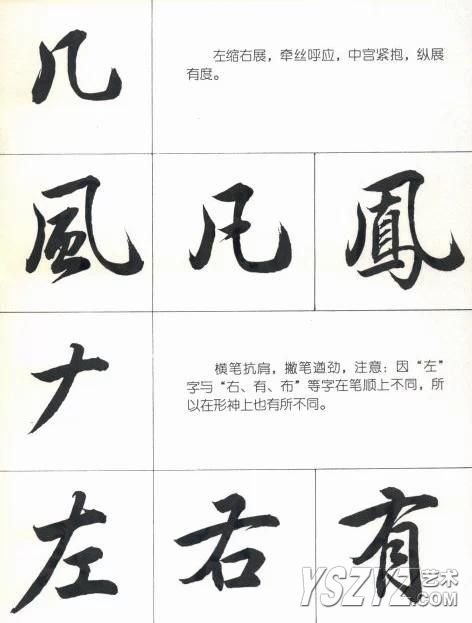 几
左缩右展，牵丝呼应，中宫紧抱，纵展
有度。
風 凡 鳳
𠂇
横笔抗肩，撇笔遒劲，注意：因“左”
字与“右、有、布”等字在笔顺上不同，所
以在形神上也有所不同。
左 右 有
YSZYZ艺术
.COM